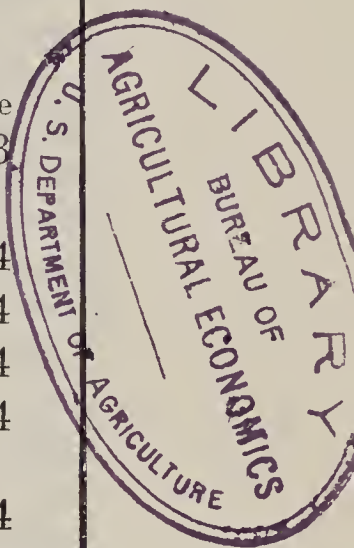 e
3
4
4
4
4
4
LIBRARY
BUREAU OF
AGRICULTURAL ECONOMICS
U. S. DEPARTMENT OF AGRICULTURE